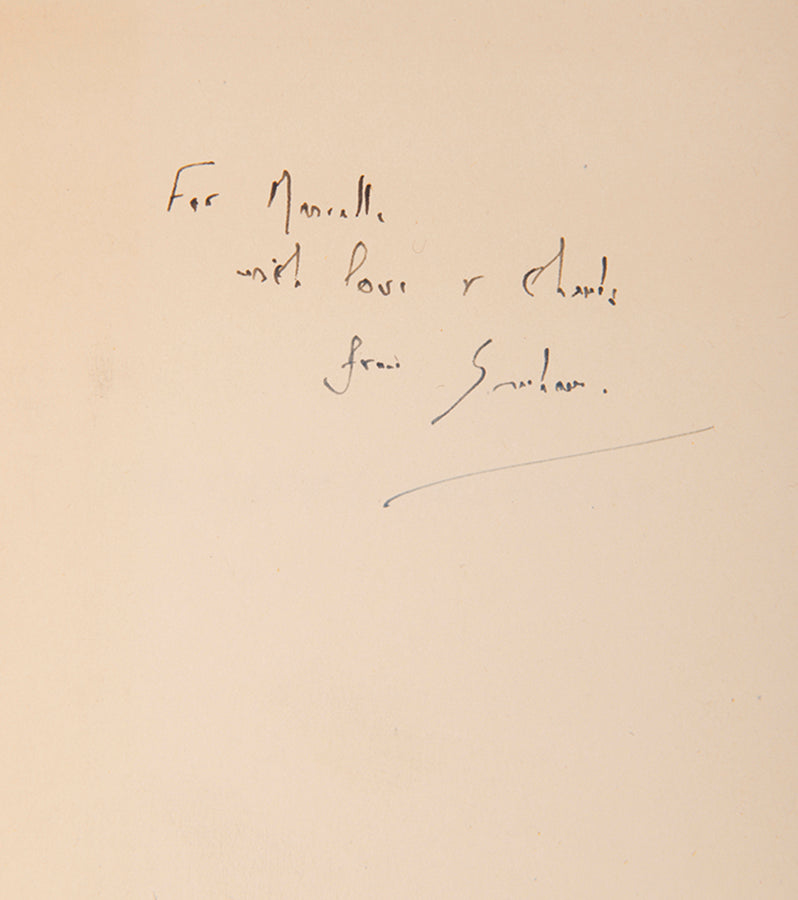 For Marcelle
with love & thanks
from Graham.